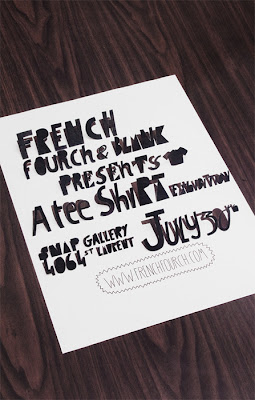 FRENCH
FOURCH & BLANK
PRESENTS
A tee SHIRT EXHIBITION
SNAP GALLERY
4064 ST LAURENT
JULY 30TH
WWW.FRENCHFOURCH.COM